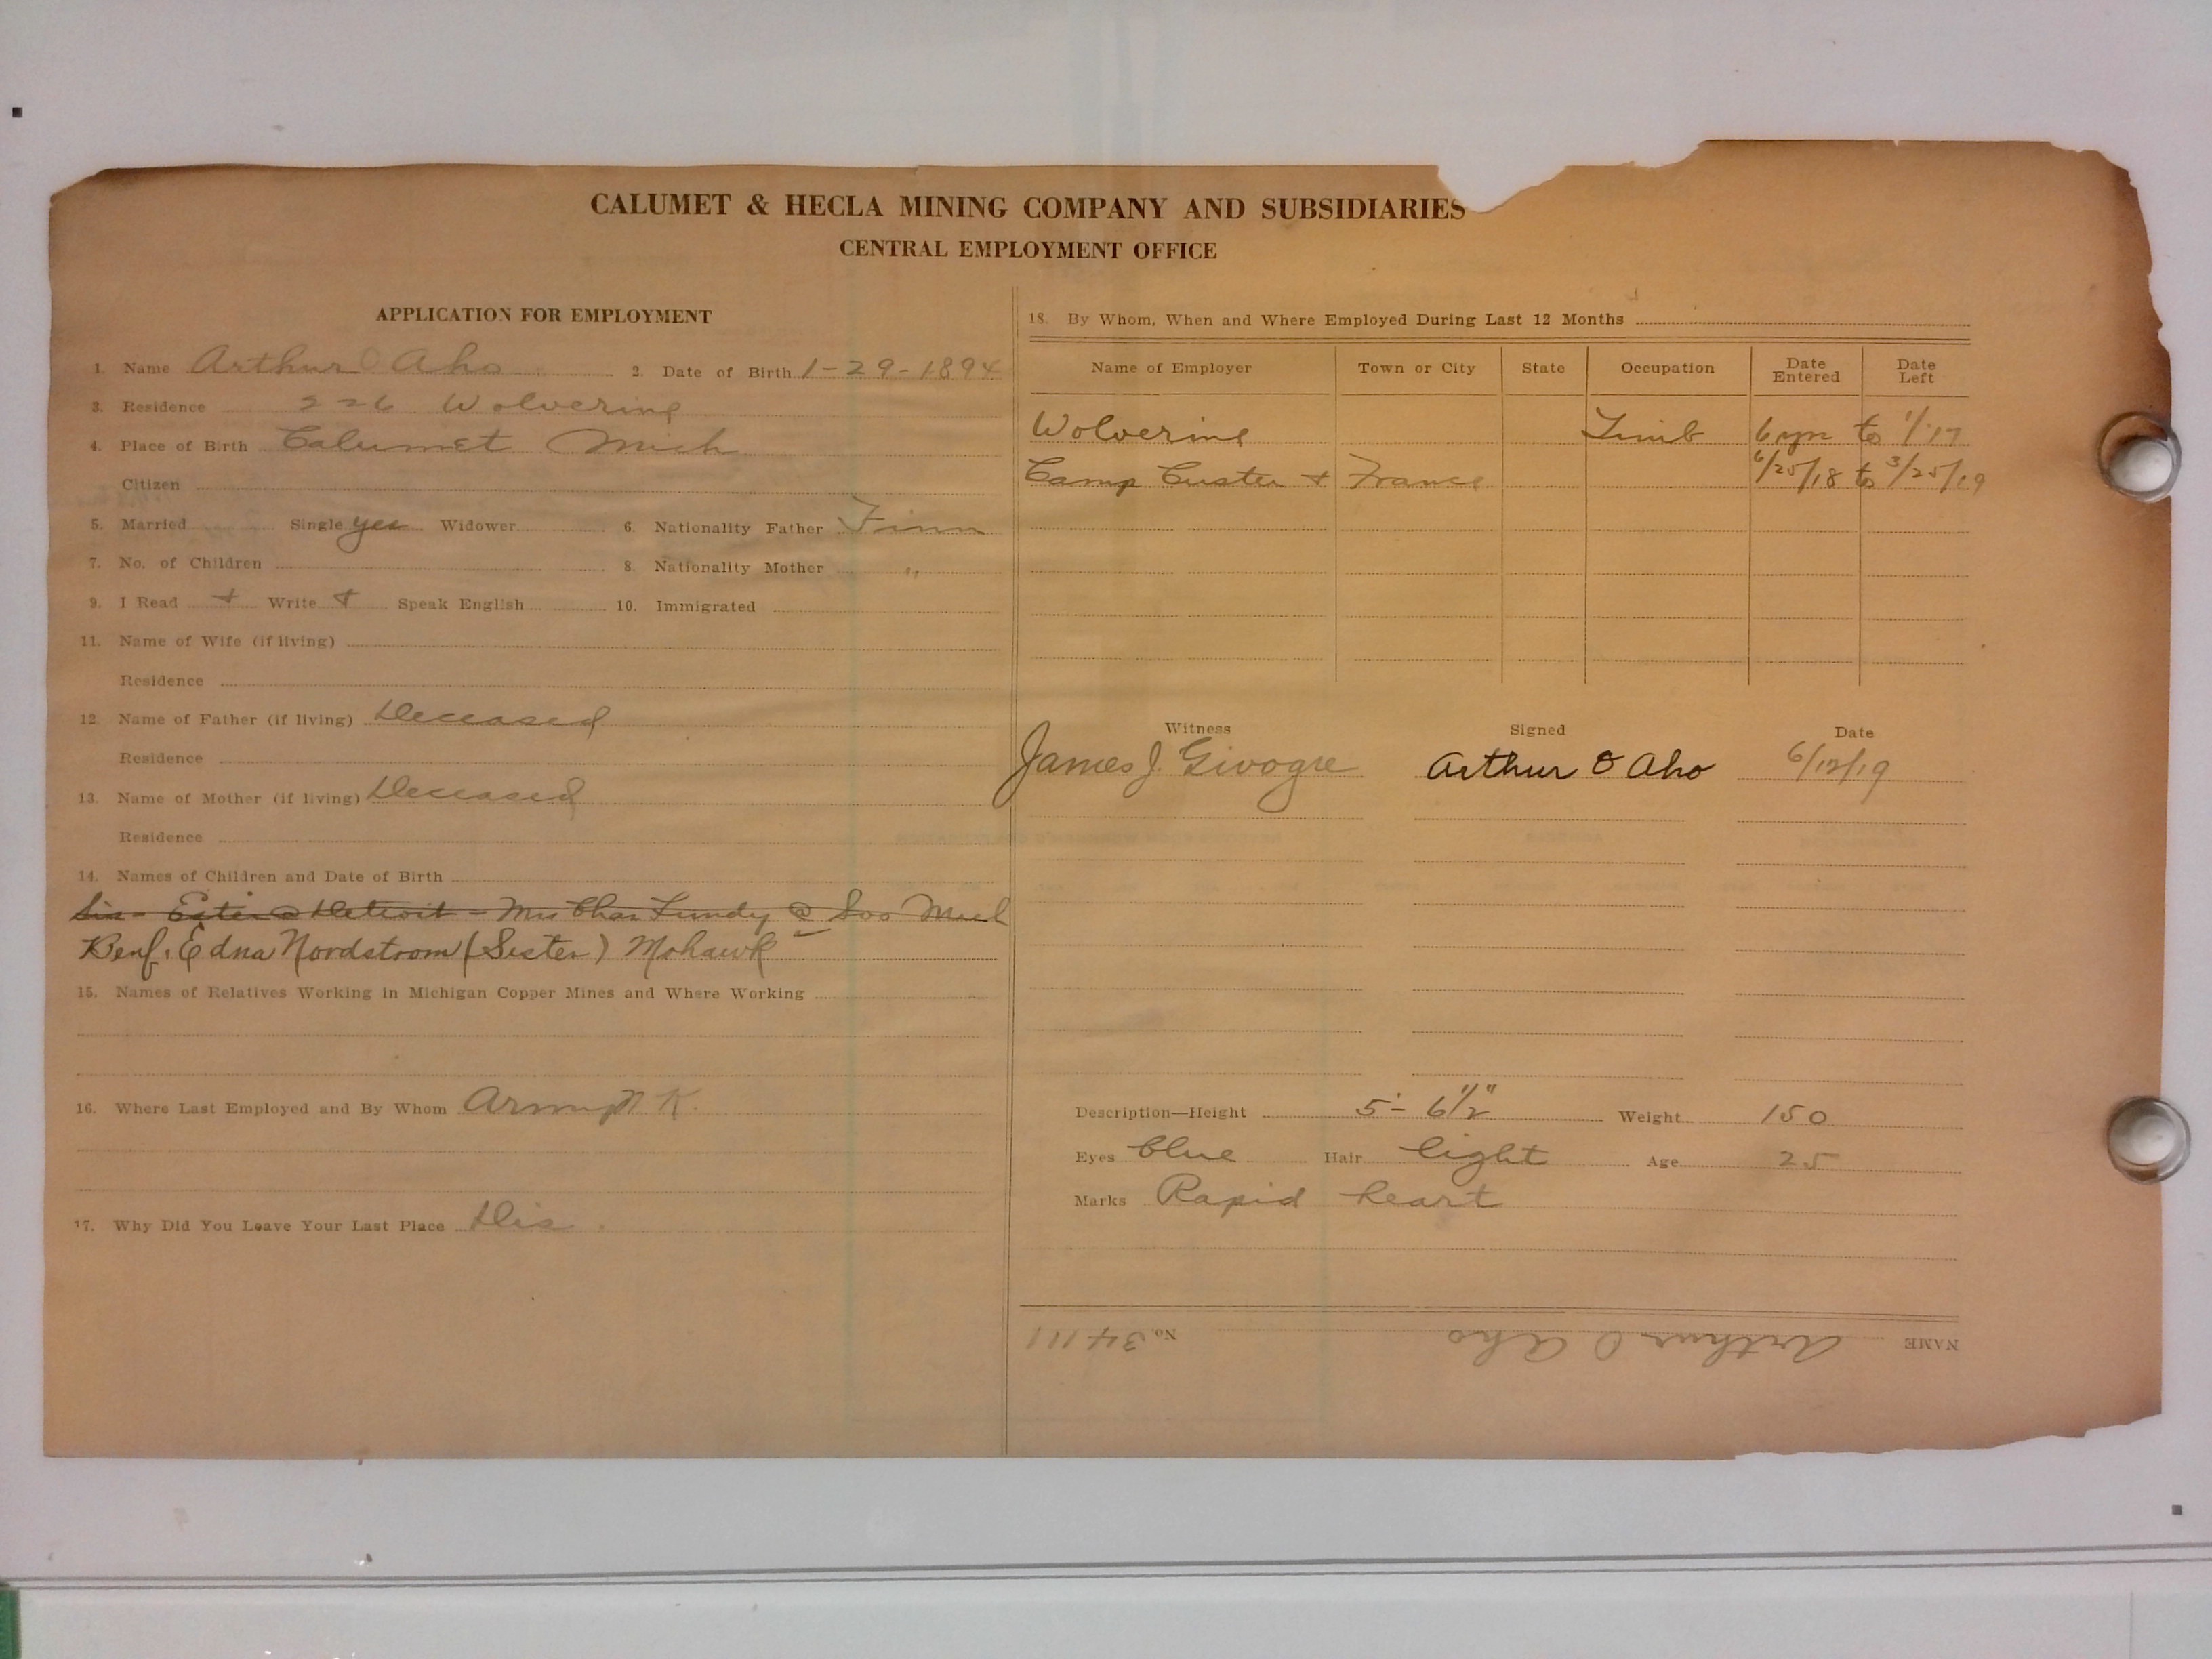 CALUMET & HECLA MINING COMPANY AND SUBSIDIARIES
CENTRAL EMPLOYMENT OFFICE
APPLICATION FOR EMPLOYMENT
1. Name Arthur O Aho 2. Date of Birth 1-29-1894
3. Residence 226 Wolverine
4. Place of Birth Calumet Mich
Citizen
5. Married Single yes Widower 6. Nationality Father Finn
7. No. of Children 8. Nationality Mother "
9. I Read + Write + Speak English 10. Immigrated
11. Name of Wife (if living)
Residence
12. Name of Father (if living) Deceased
Residence
13. Name of Mother (if living) Deceased
Residence
14. Names of Children and Date of Birth
Sis - Ester @ Detroit - Mrs Chas Lundy @ Soo Mich
Benf. Edna Nordstrom (Sister) Mohawk
15. Names of Relatives Working in Michigan Copper Mines and Where Working
16. Where Last Employed and By Whom Army
17. Why Did You Leave Your Last Place Dis.
18. By Whom, When and Where Employed During Last 12 Months
Name of Employer Town or City State Occupation Date Entered Date Left
Wolverine 6 yrs to 1/17
Camp Custer + France 6/25/18 to 3/25/19
Witness Signed Date
James J. Givogre Arthur O Aho 6/12/19
Description—Height 5'- 6 1/2" Weight 150
Eyes blue Hair light Age 25
Marks Rapid heart
NAME Arthur O Aho No. 34111